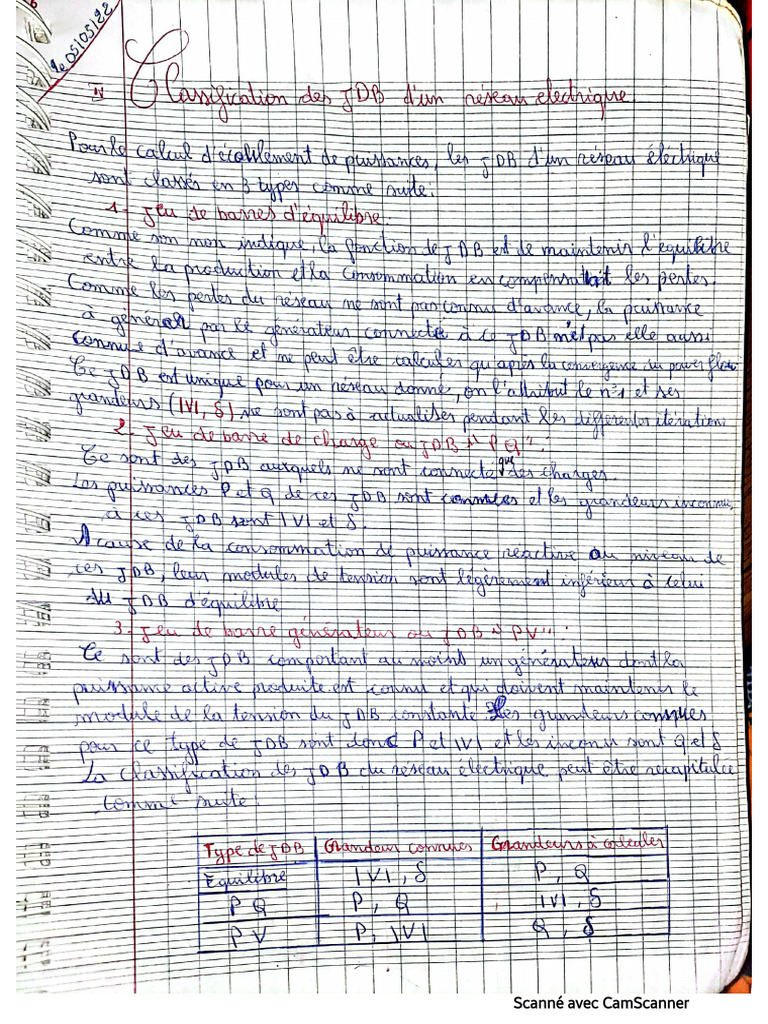 le 05/05/22
IV Classification des JDB d'un réseau electrique
Pour le calcul d'écoulement de puissances, les JDB d'un réseau électrique
sont classés en 3 types comme suite.
1- Jeu de barres d'équilibre.
Comme son non indique, la fonction de JDB est de maintenir l'équilibre
entre la production et la consommation en compensant les pertes.
Comme les pertes du réseau ne sont pas connu d'avance, la puissance
à générer par le générateur connecté à ce JDB n'est pas elle aussi
connue d'avance et ne peut être calculer qu'après la convergence du power flow
Ce JDB est unique pour un réseau donné, on l'attribut le n°1 et ses
grandeurs (|V|, δ) ne sont pas à actualiser pendant les différentes itération
2- Jeu de barre de charge ou JDB "PQ":
Ce sont des JDB auxquels ne sont connecte que des charges.
Les puissances P et Q de ces JDB sont connues et les grandeurs inconnues
à ces JDB sont |V| et δ.
A cause de la consommation de puissance réactive au niveau de
ces JDB, leur modules de tension sont légèrement inférieur à celui
du JDB d'équilibre
3- Jeu de barre générateur ou JDB "PV":
Ce sont des JDB comportant au moins un générateur dont la
puissance active produite est connu et qui doivent maintenir le
module de la tension du JDB constante les grandeurs connues
pour ce type de JDB sont donc P et |V| et les inconnu sont Q et δ
La classification des JDB du réseau électrique peut être recapitulée
comme suite.
Type de JDB Grandeur connues Grandeurs à calculer
Equilibre |V|, δ P, Q
PQ P, Q |V|, δ
PV P, |V| Q, δ
Scanné avec CamScanner